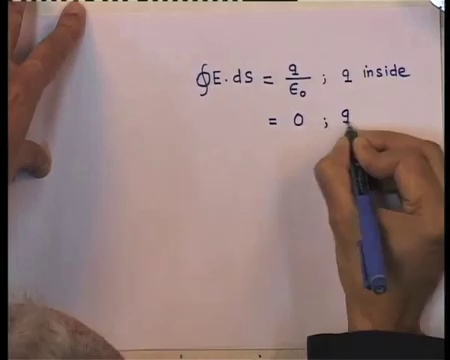 ∮E.dS = q/ϵ₀ ; q inside
= 0 ; q